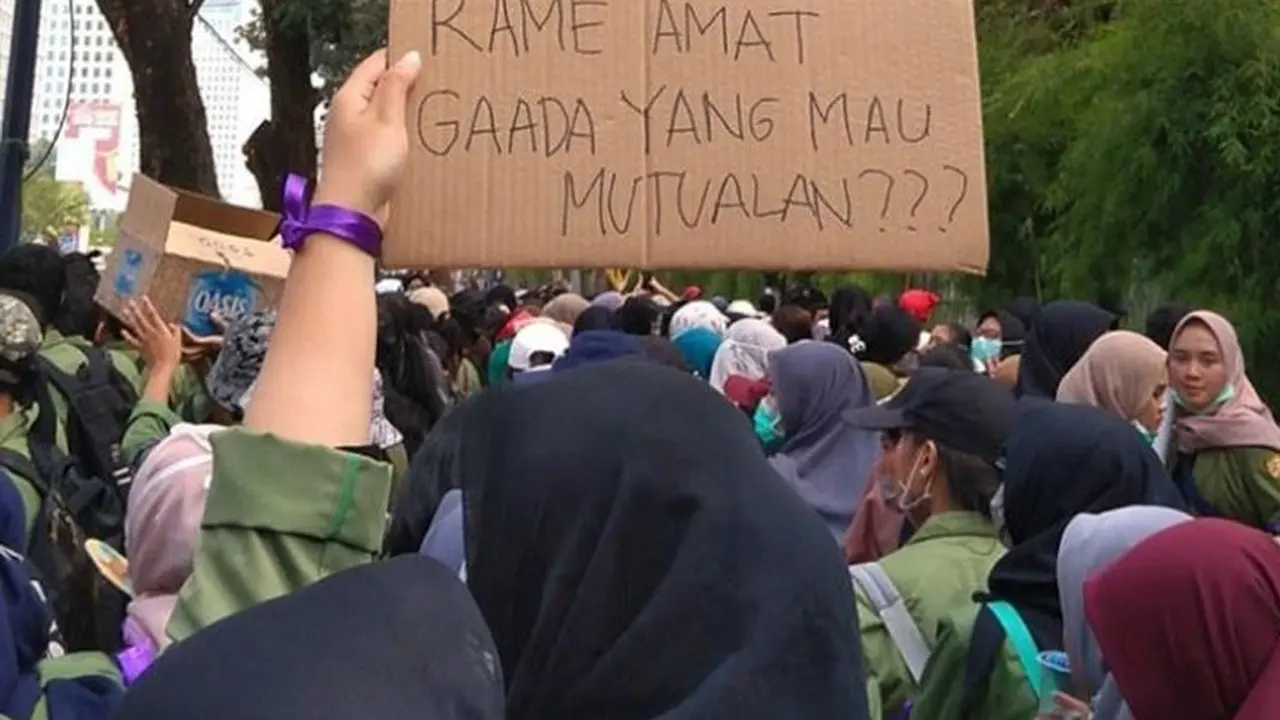 RAME AMAT
GAADA YANG MAU
MUTUALAN???
OASIS